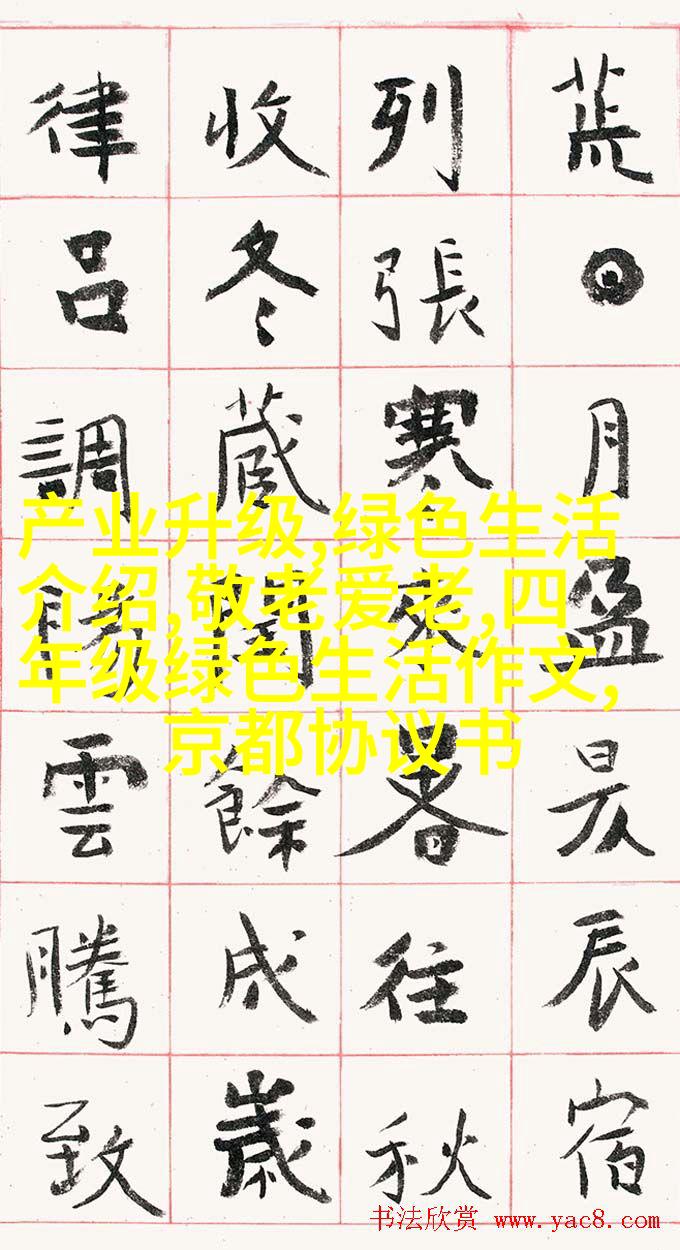 荒日月盈昃辰宿
列張寒來暑往秋
收冬藏閏餘成歲
律呂調陽雲騰致
产业升级,绿色生活
介绍,敬老爱老,四
年级绿色生活作文,
京都协议书
书法欣赏 www.yac8.com